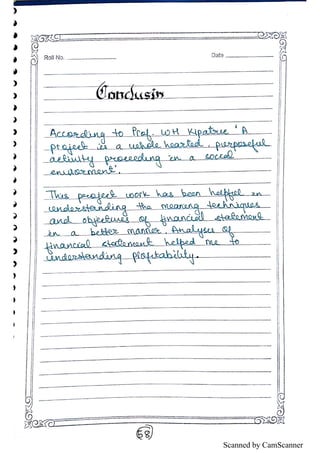 Roll No.
Date
Conclusin
According to Prof. WH Kipatric 'A
project is a whole hearted, purposeful
activity proceeding in a social
enviorment'.
This project work has been helpful in
understanding the meaning techniques
and objectives of financial statement
in a better manner. Analyses of
financial statement helped me to
understanding profitability.
58
Scanned by CamScanner